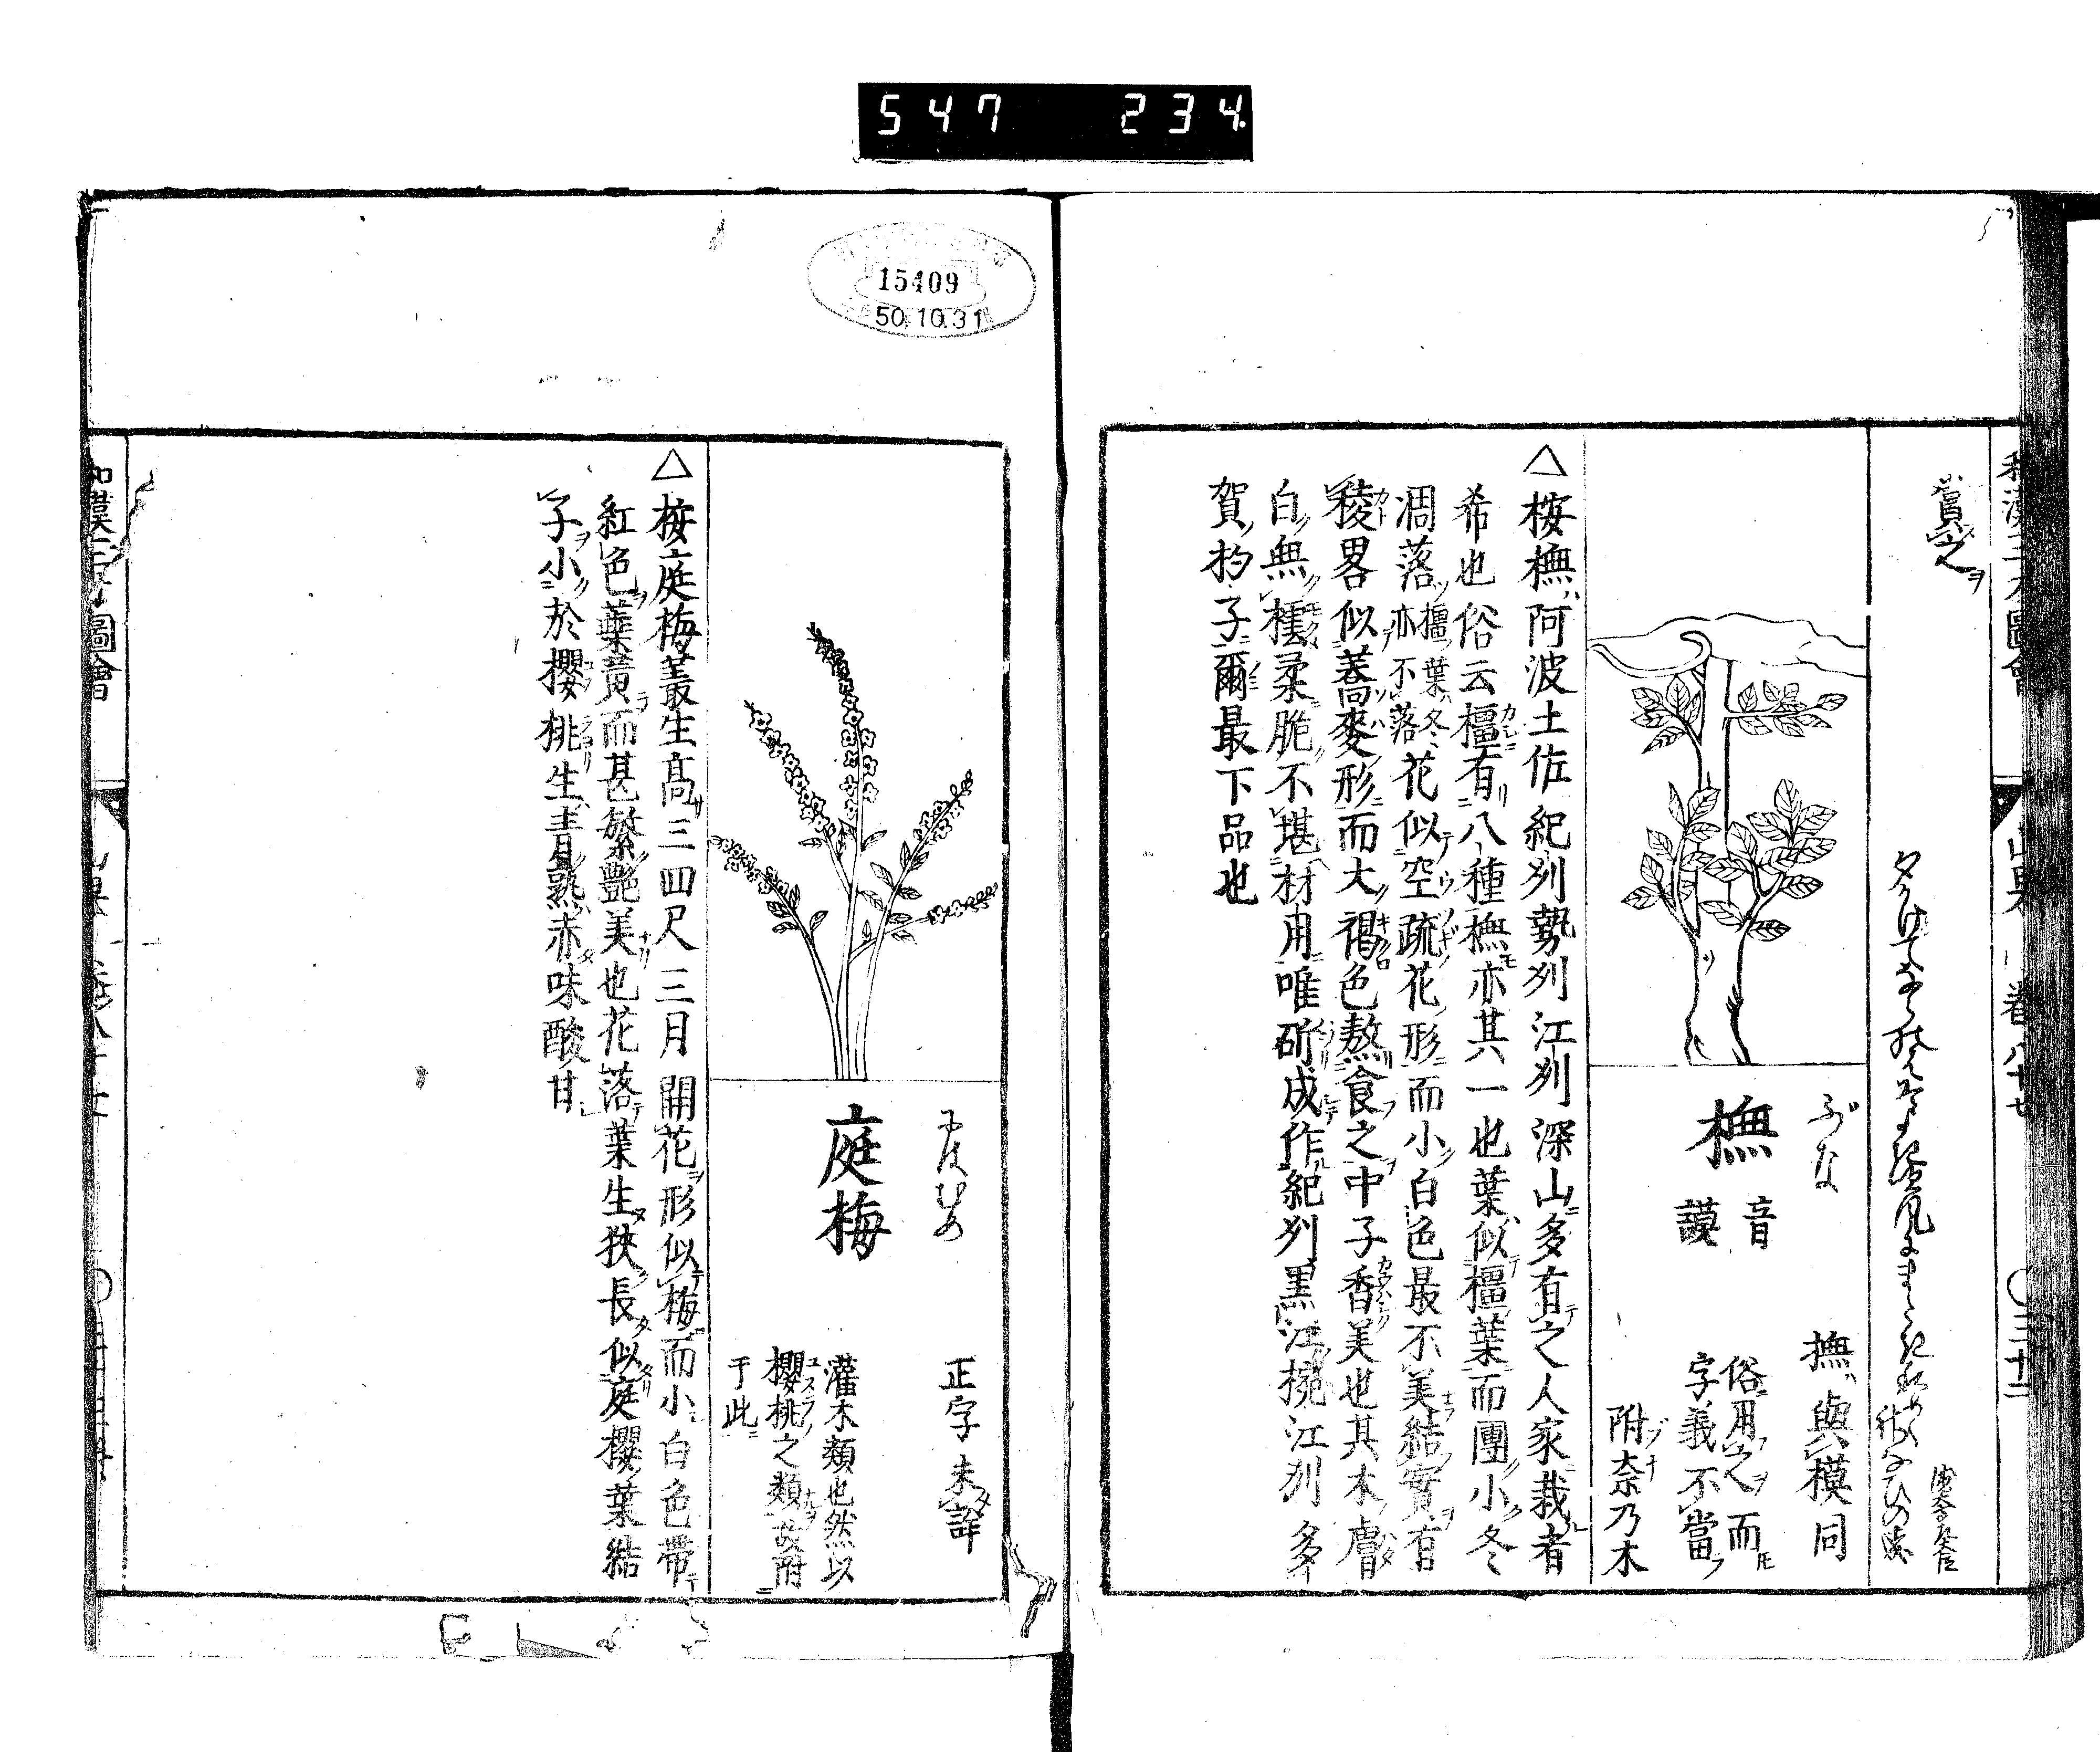 547 234
15409
50.10.31
賞之
ぶな
橅
音
謨
橅與模同
俗用之而
字義不當
附奈乃木
△桉橅阿波土佐紀州勢州江州深山多有之人家栽者
希也俗云橿有八種橅亦其一也葉似橿葉而團小冬
凋落橿葉冬亦不落花似空疏花形而小白色最不美結實有
稜畧似蕎麥形而大褐色熬食之中子香美也其木膚
白無橒柔脆不堪材用唯斫成作紀州黒江椀江州多
賀杓子爾最下品也
にはむめ
庭梅
正字未詳
灌木類也然以
櫻桃之類故附
于此
△桉庭梅叢生高三四尺三月開花形似梅而小白色帶
紅色蘂黄而甚繁艷美也花落葉生狹長似庭櫻葉結
子小於櫻桃生青熟赤味酸甘